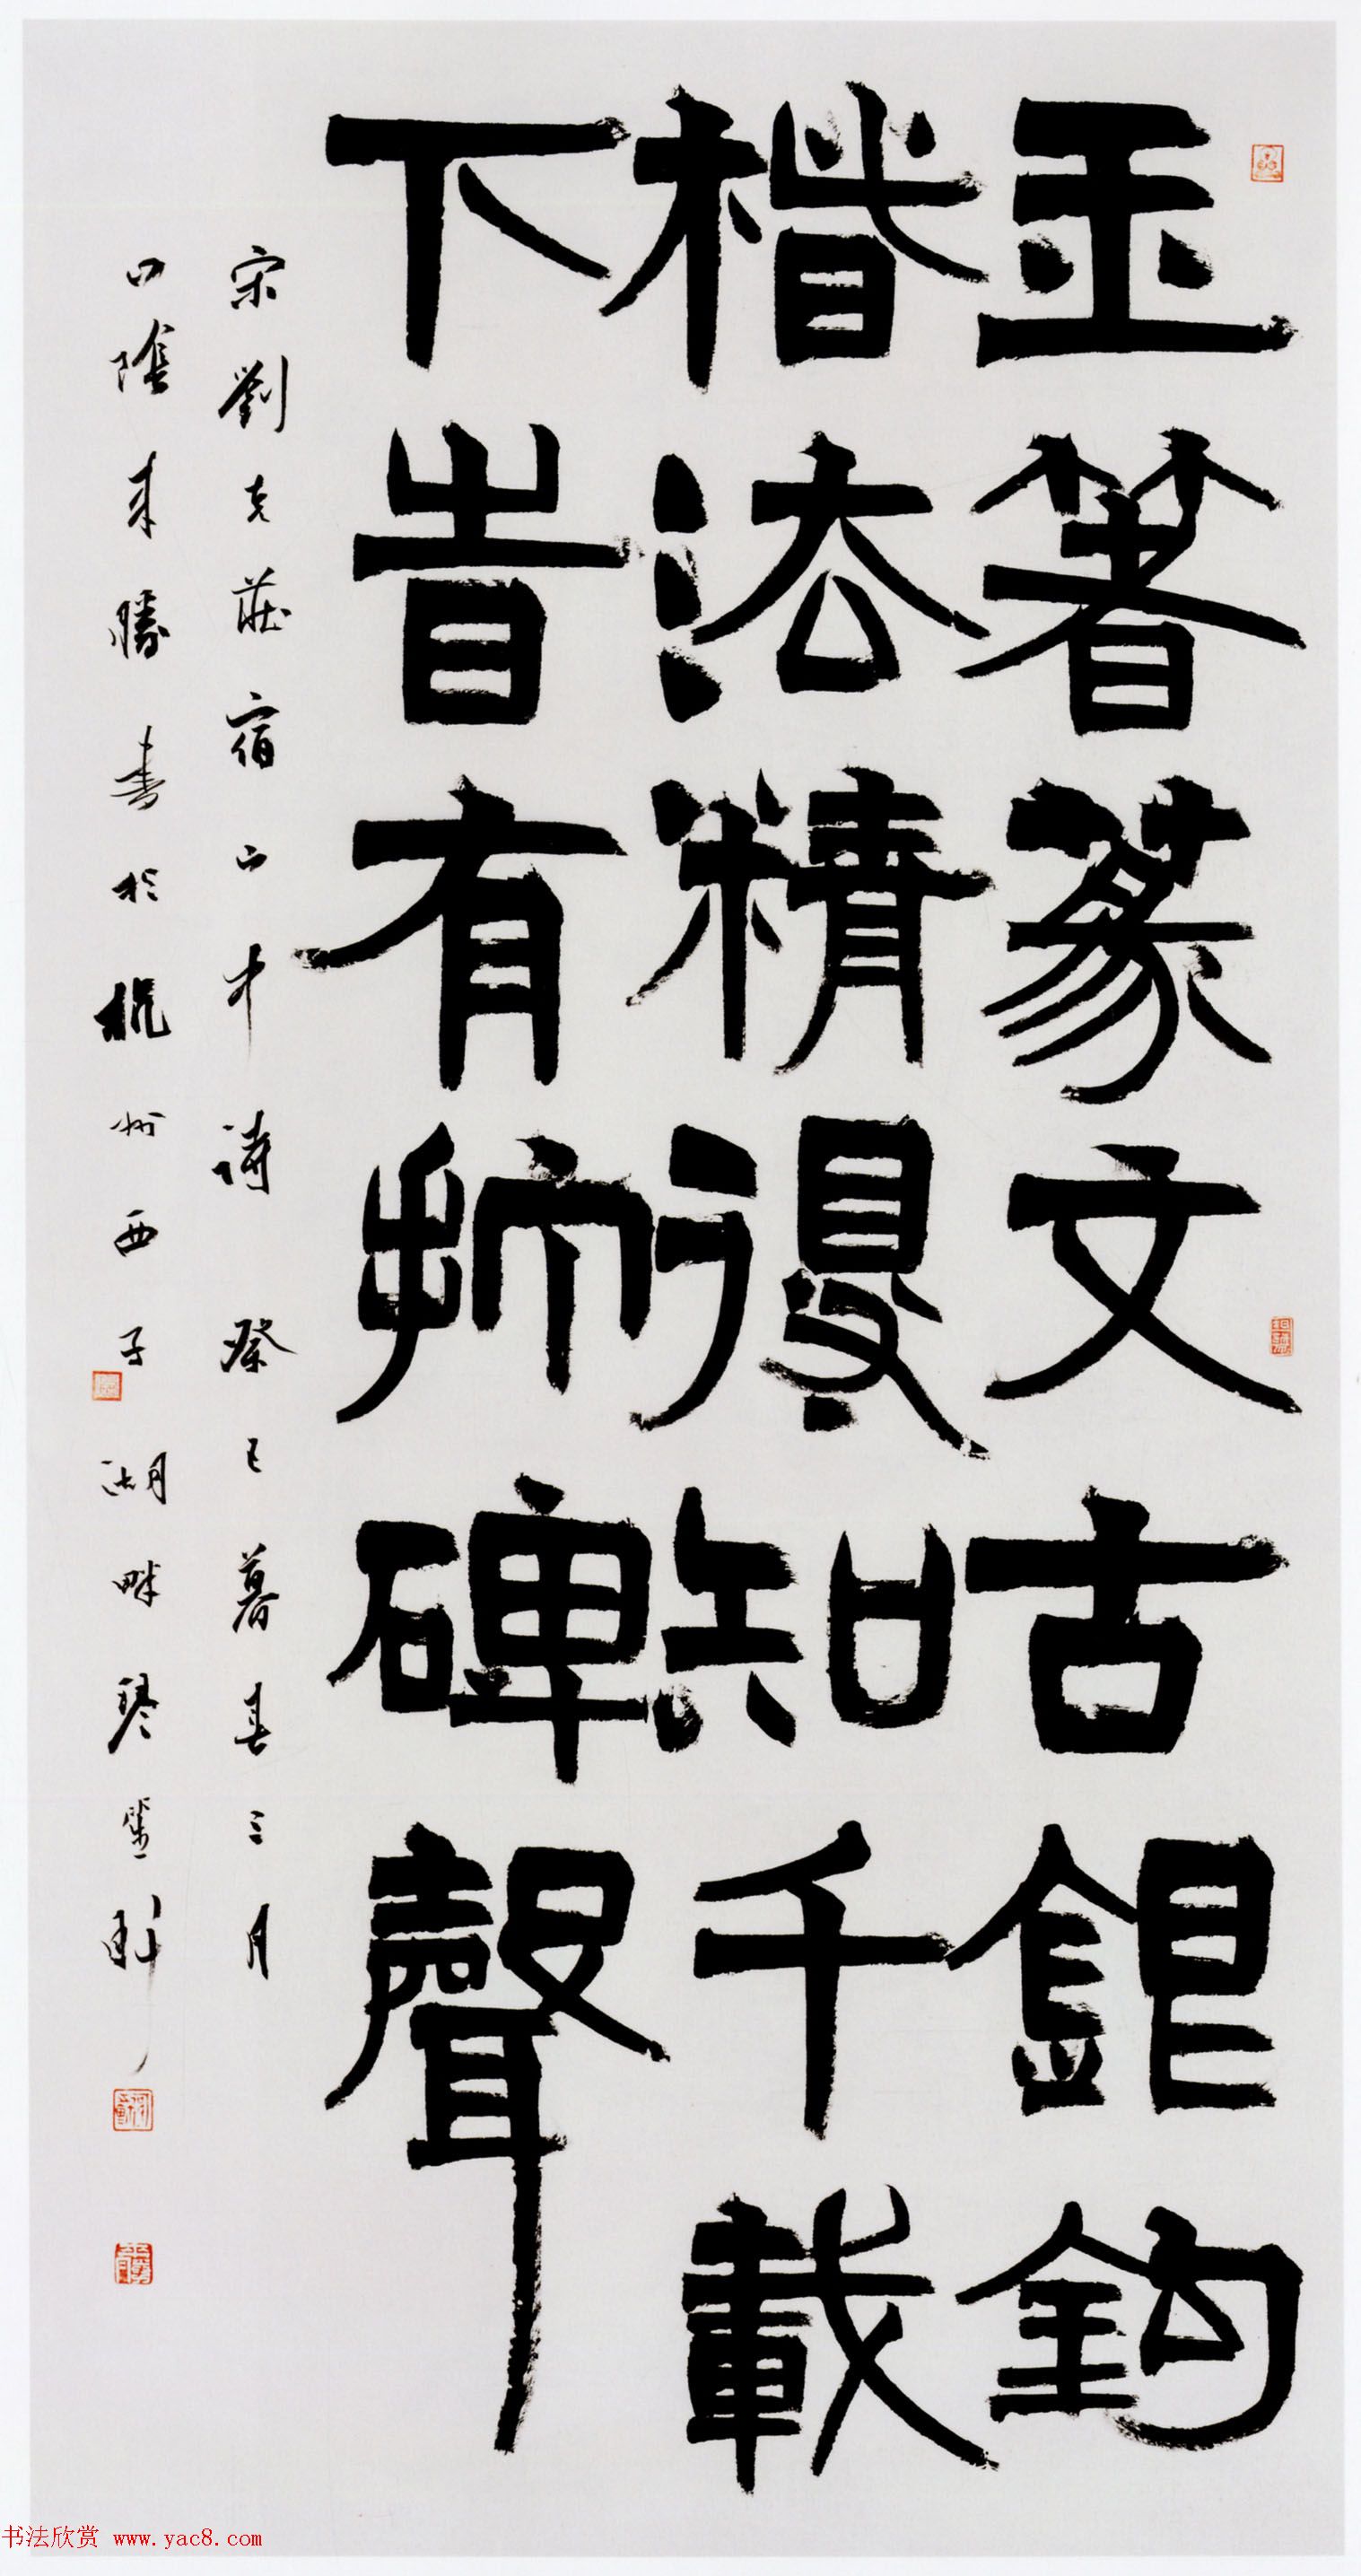 玉箸篆文古銀鈎
楷法精須知千載
下昔有打碑聲
宋劉克莊宿山中詩 癸巳暮春三月
山陰來勝書於杭州西子湖畔琴
书法欣赏 www.yac8.com